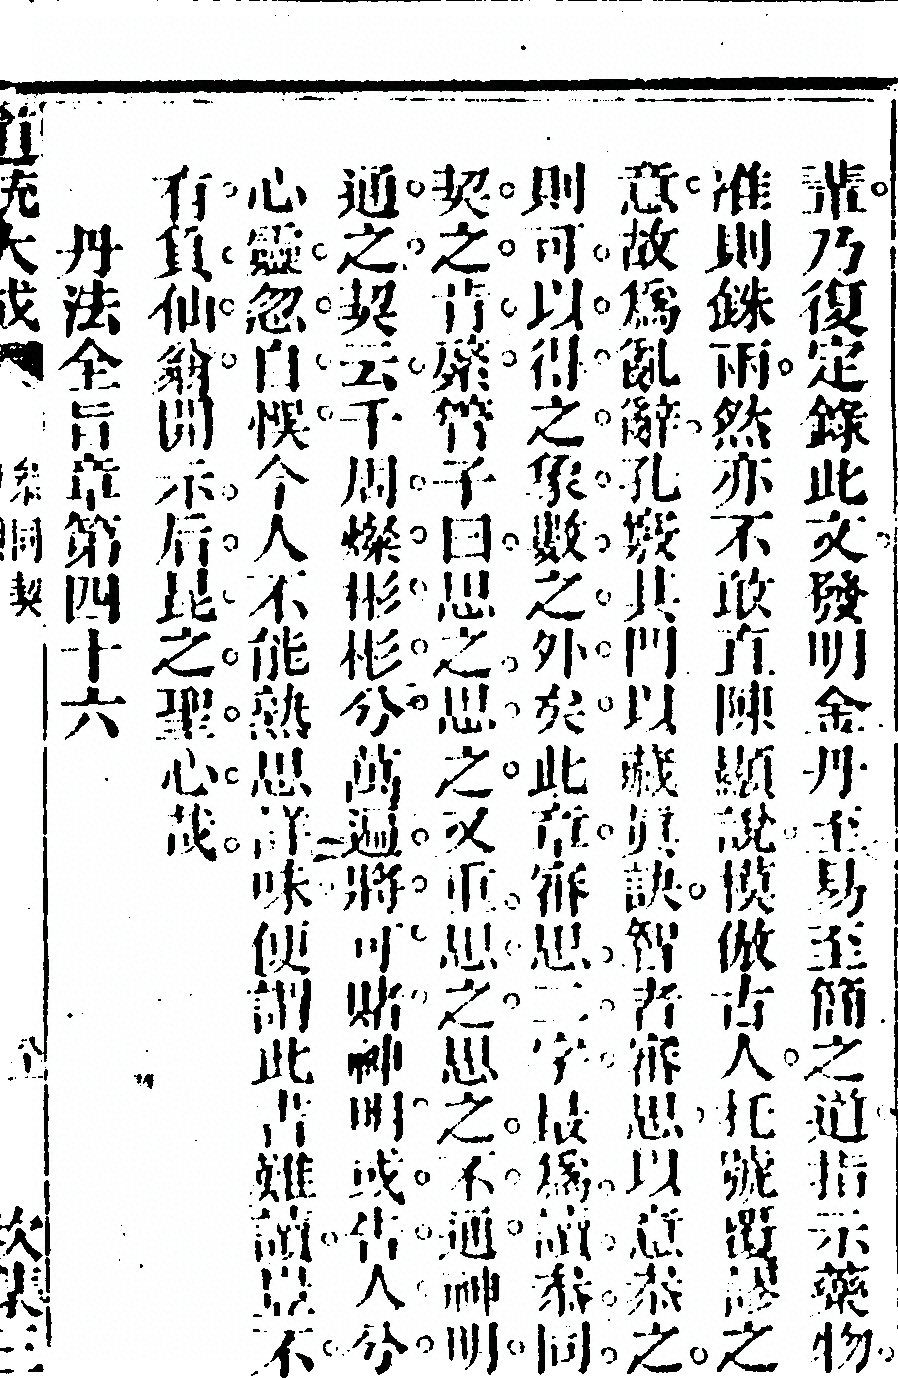 輩乃復定錄此文發明金丹至易至簡之道指示藥物
准則銖兩然亦不敢直陳顯說模倣古人托號選謬之
意故為亂辭孔竅其門以藏真訣智者審思以意叅之
則可以得之象數之外矣此章審思二字最為讀叅同
契之肯綮管子曰思之思之又重思之思之不通神明
通之契云千周燦彬彬兮萬遍將可睹神明或告人兮
心靈忽自悞今人不能熟思詳味便謂此書難讀豈不
有負仙翁開示后昆之聖心哉
丹法全旨章第四十六
道統大成 叅同契 坎集三